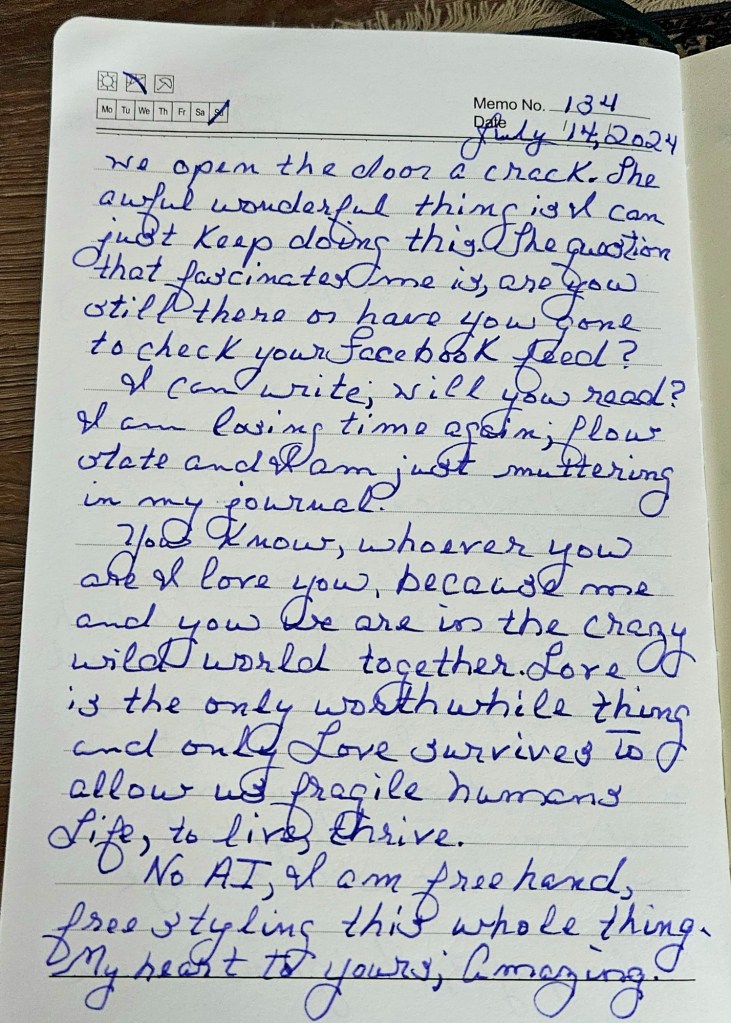 Mo Tu We Th Fr Sa Su
Memo No. 134
Date July 14, 2024
we open the door a crack. The
awful wonderful thing is I can
just keep doing this. The question
that fascinates me is, are you
still there or have you gone
to check your facebook feed?
I can write; will you read?
I am losing time again; flow
state and I am just muttering
in my journal.
You know, whoever you
are I love you, because me
and you we are in the crazy
wild world together. Love
is the only worthwhile thing
and only Love survives to
allow us fragile humans
Life, to live, thrive.
No AI, I am free hand,
free styling this whole thing.
My heart to yours; Amazing.